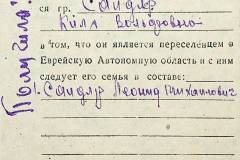 ся гр. Сандлер
в том, что он является переселенцем в
Еврейскую Автономную область и с ним
следует его семья в составе:
1. Сандлер Леонид Михайлович